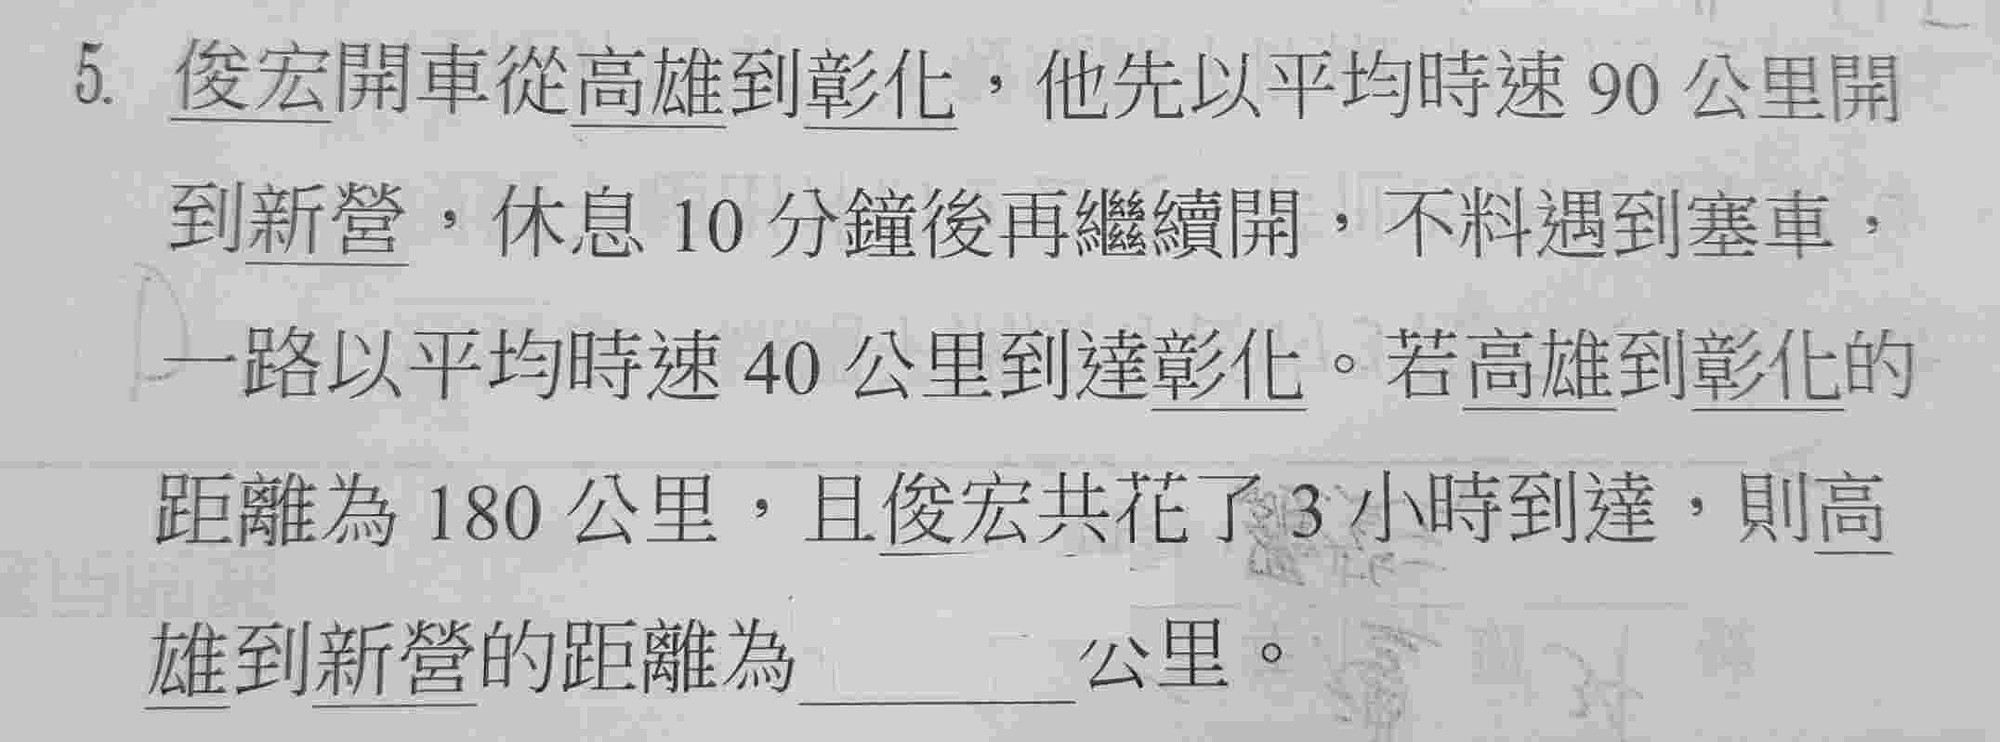 5. 俊宏開車從高雄到彰化，他先以平均時速 90 公里開
到新營，休息 10 分鐘後再繼續開，不料遇到塞車，
一路以平均時速 40 公里到達彰化。若高雄到彰化的
距離為 180 公里，且俊宏共花了 3 小時到達，則高
雄到新營的距離為＿＿＿＿公里。